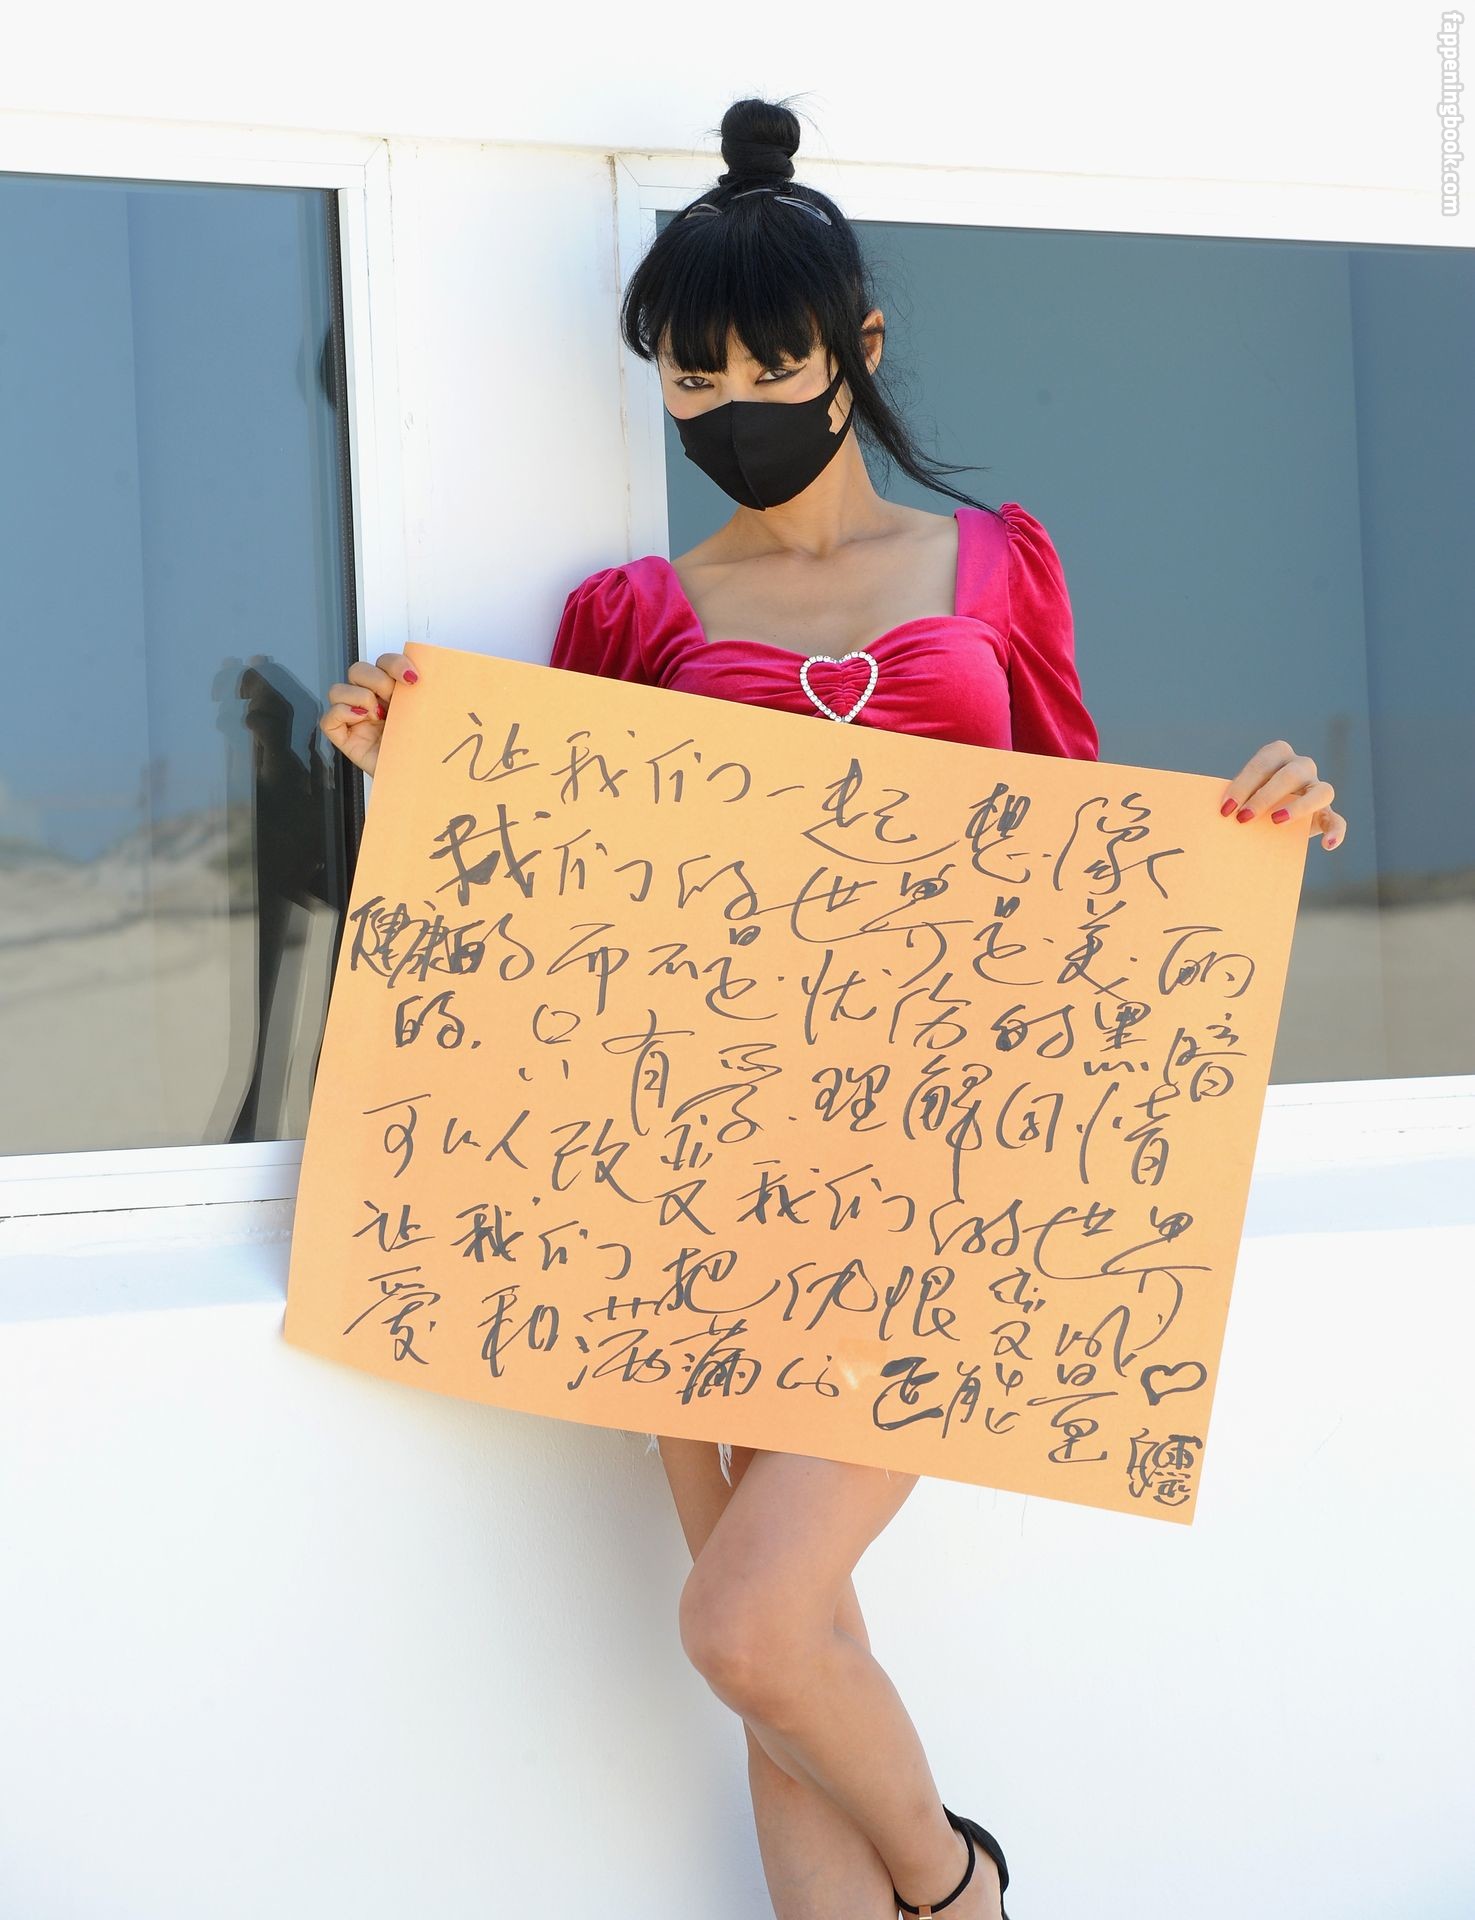 让我们一起想像
我们的世界是美丽
健康的而不是忧伤的黑暗
的.只有爱.理解同情
可以改变我们的世界
让我们把仇恨变成
爱和洒满心正能量♡
fappeningbook.com